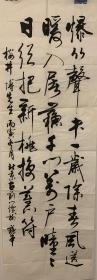 爆竹聲中一歲除春風送
暖入屠蘇千門万戶曈曈
日總把新桃換舊符
桜井博先生 丙寅冬月